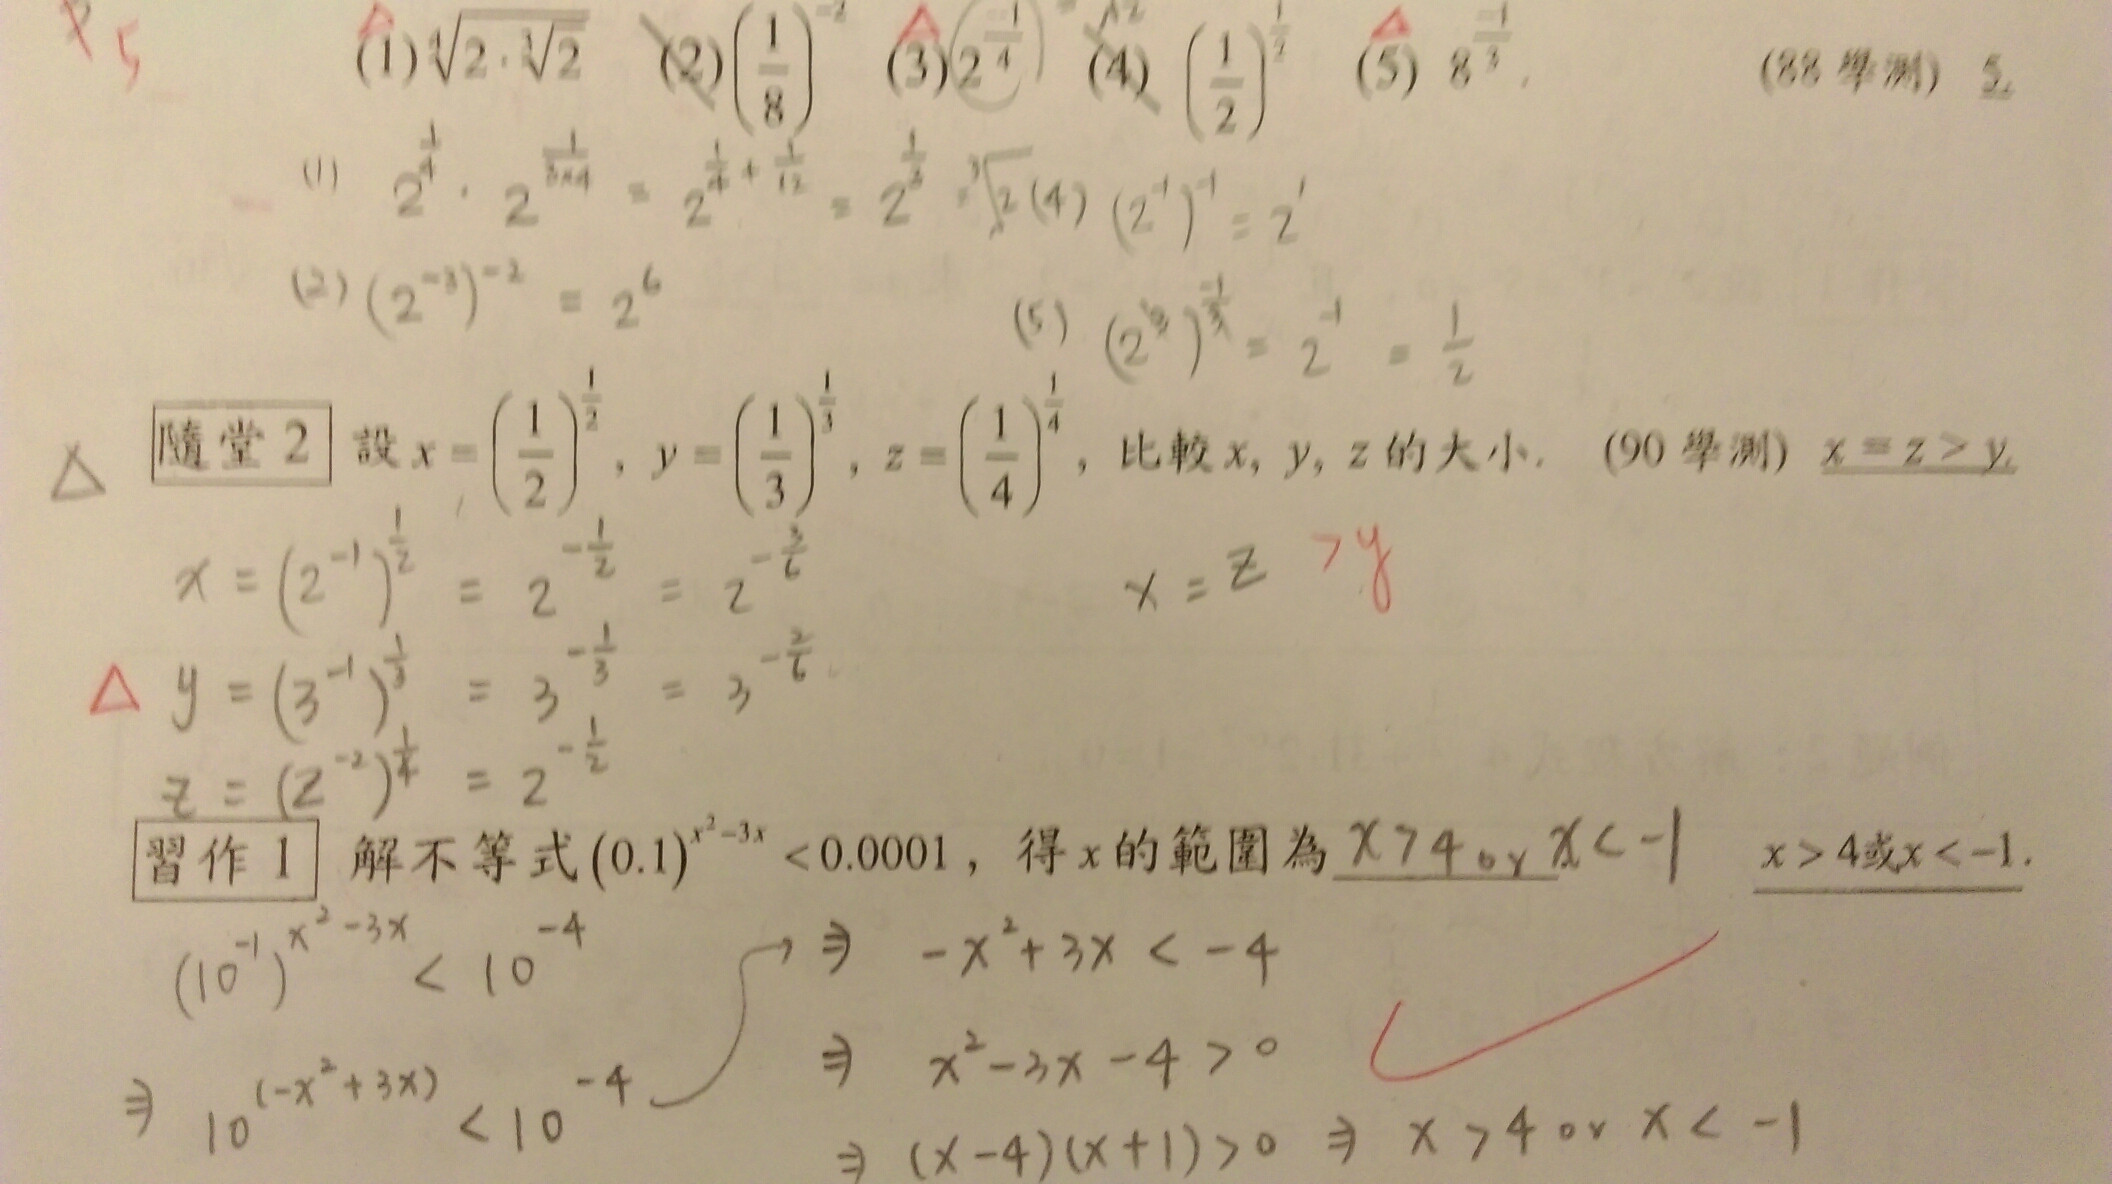 P5
(1) ∜(2·∛2) (2) (1/8)^-2 (3) 2^(-1/4) (4) (1/2)^(1/2) (5) 8^(-1/3). (88 學測) 5.
(1) 2^(1/4) · 2^(1/(3×4)) = 2^(1/4 + 1/12) = 2^(1/3) = ∛2 (4) (2^-1)^-1 = 2^1
(2) (2^-3)^-2 = 2^6
(5) (2^3)^(-1/3) = 2^-1 = 1/2
△ 隨堂 2 設 x = (1/2)^(1/2), y = (1/3)^(1/3), z = (1/4)^(1/4), 比較 x, y, z 的大小. (90 學測) x = z > y.
x = (2^-1)^(1/2) = 2^(-1/2) = 2^(-3/6) x = z > y
△ y = (3^-1)^(1/3) = 3^(-1/3) = 3^(-2/6)
z = (2^-2)^(1/4) = 2^(-1/2)
習作 1 解不等式 (0.1)^(x²-3x) < 0.0001, 得 x 的範圍為 x > 4 or x < -1 x > 4或x < -1.
(10^-1)^(x²-3x) < 10^-4 → ⇒ -x² + 3x < -4
⇒ x² - 3x - 4 > 0
⇒ 10^(-x²+3x) < 10^-4
⇒ (x-4)(x+1) > 0 ⇒ x > 4 or x < -1